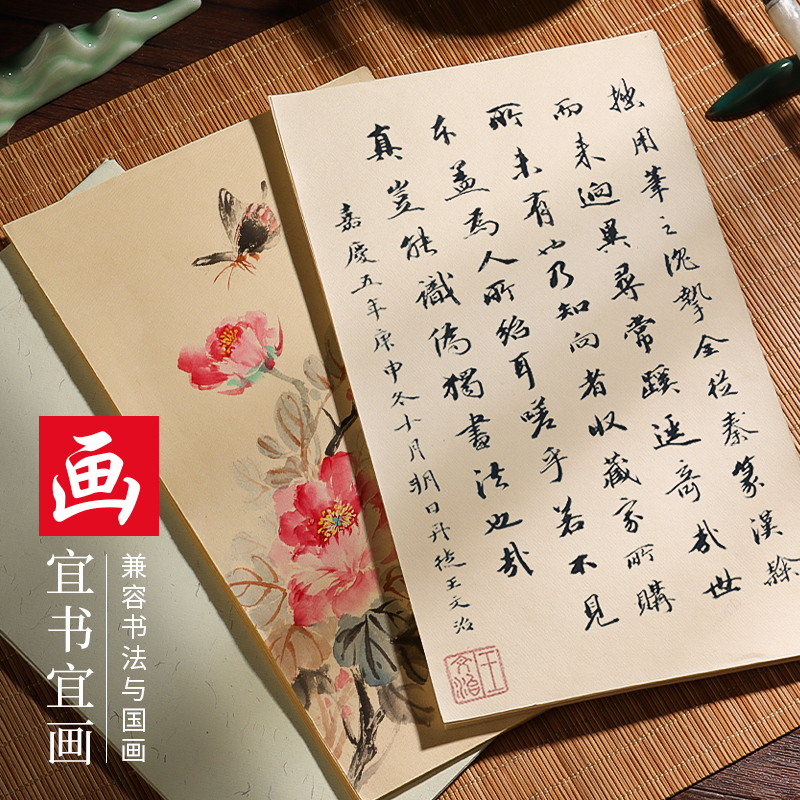 用筆之沈摯全從秦篆漢隸
而来迥異尋常蹊逕奇哉世
所未有也乃知向者收藏家所購
本盖為人所紿耳嗟乎若不見
真豈能識偽獨書法也哉
嘉慶五年庚申冬十月朔日丹徒王文治
王文治
画
宜书宜画
兼容书法与国画